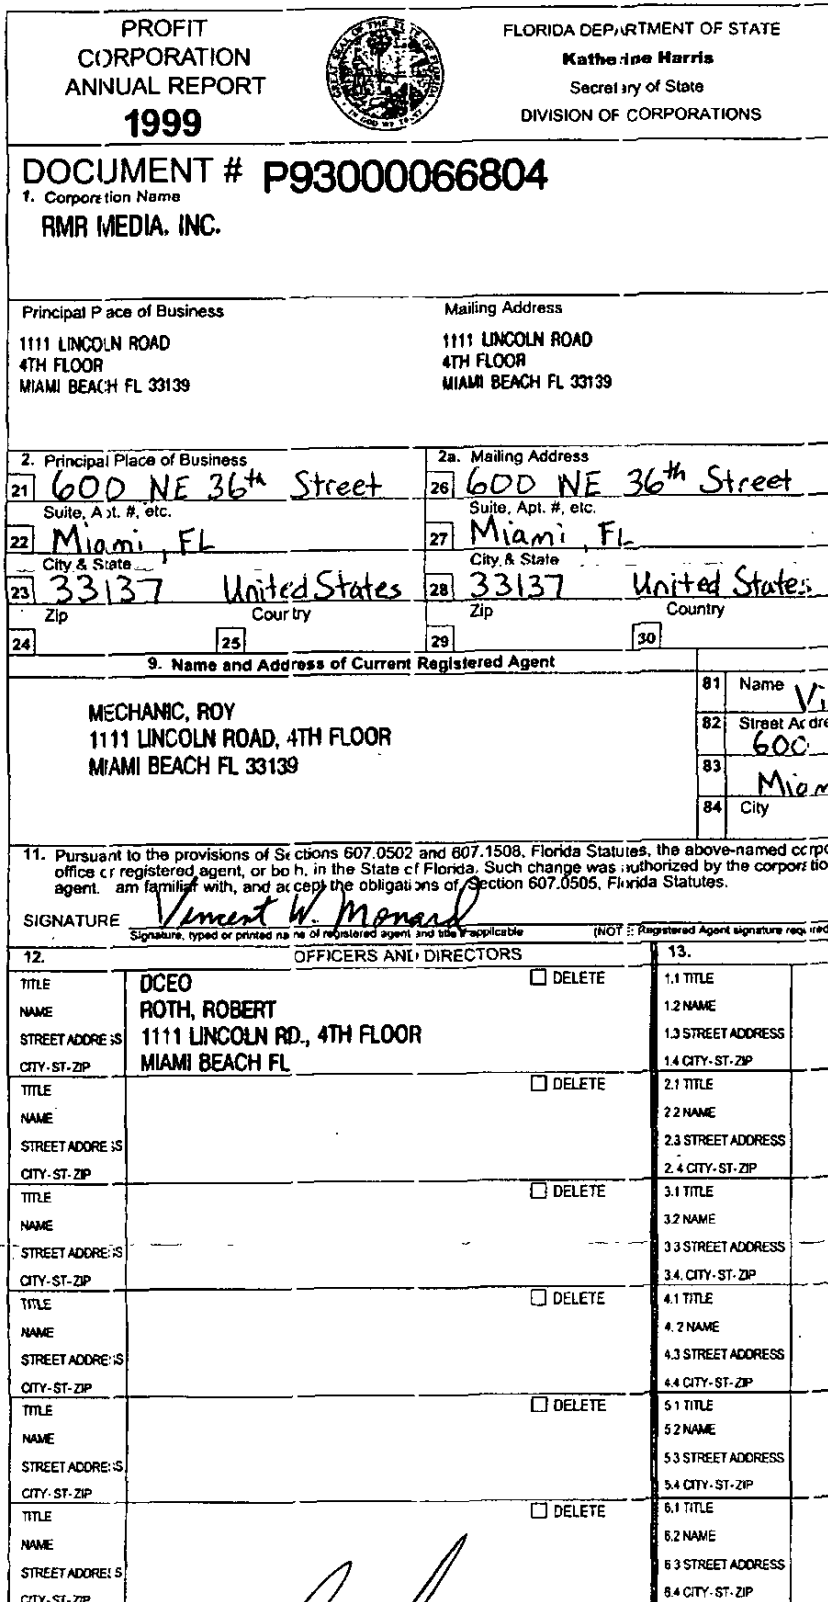 PROFIT
CORPORATION
ANNUAL REPORT
1999
FLORIDA DEPARTMENT OF STATE
Katherine Harris
Secretary of State
DIVISION OF CORPORATIONS
DOCUMENT # P93000066804
1. Corporation Name
RMR MEDIA, INC.
Principal Place of Business
1111 LINCOLN ROAD
4TH FLOOR
MIAMI BEACH FL 33139
Mailing Address
1111 LINCOLN ROAD
4TH FLOOR
MIAMI BEACH FL 33139
2. Principal Place of Business
21 600 NE 36th Street
Suite, Apt. #, etc.
22 Miami, FL
City & State
23 33137 United States
Zip Country
24 25
2a. Mailing Address
26 600 NE 36th Street
Suite, Apt. #, etc.
27 Miami, FL
City & State
28 33137 United States
Zip Country
29 30
9. Name and Address of Current Registered Agent
MECHANIC, ROY
1111 LINCOLN ROAD, 4TH FLOOR
MIAMI BEACH FL 33139
81 Name Vi
82 Street Addre
600
83
Miam
84 City
11. Pursuant to the provisions of Sections 607.0502 and 607.1508, Florida Statutes, the above-named corpo
office or registered agent, or both, in the State of Florida. Such change was authorized by the corporatio
agent. am familiar with, and accept the obligations of, Section 607.0505, Florida Statutes.
SIGNATURE Vincent W. Monard
Signature, typed or printed name of registered agent and title if applicable (NOTE: Registered Agent signature required
12. OFFICERS AND DIRECTORS 13.
TITLE DCEO DELETE 1.1 TITLE
NAME ROTH, ROBERT 1.2 NAME
STREET ADDRESS 1111 LINCOLN RD., 4TH FLOOR 1.3 STREET ADDRESS
CITY-ST-ZIP MIAMI BEACH FL 1.4 CITY-ST-ZIP
TITLE DELETE 2.1 TITLE
NAME 2.2 NAME
STREET ADDRESS 2.3 STREET ADDRESS
CITY-ST-ZIP 2.4 CITY-ST-ZIP
TITLE DELETE 3.1 TITLE
NAME 3.2 NAME
STREET ADDRESS 3.3 STREET ADDRESS
CITY-ST-ZIP 3.4. CITY-ST-ZIP
TITLE DELETE 4.1 TITLE
NAME 4.2 NAME
STREET ADDRESS 4.3 STREET ADDRESS
CITY-ST-ZIP 4.4 CITY-ST-ZIP
TITLE DELETE 5.1 TITLE
NAME 5.2 NAME
STREET ADDRESS 5.3 STREET ADDRESS
CITY-ST-ZIP 5.4 CITY-ST-ZIP
TITLE DELETE 6.1 TITLE
NAME 6.2 NAME
STREET ADDRESS 6.3 STREET ADDRESS
CITY-ST-ZIP 6.4 CITY-ST-ZIP